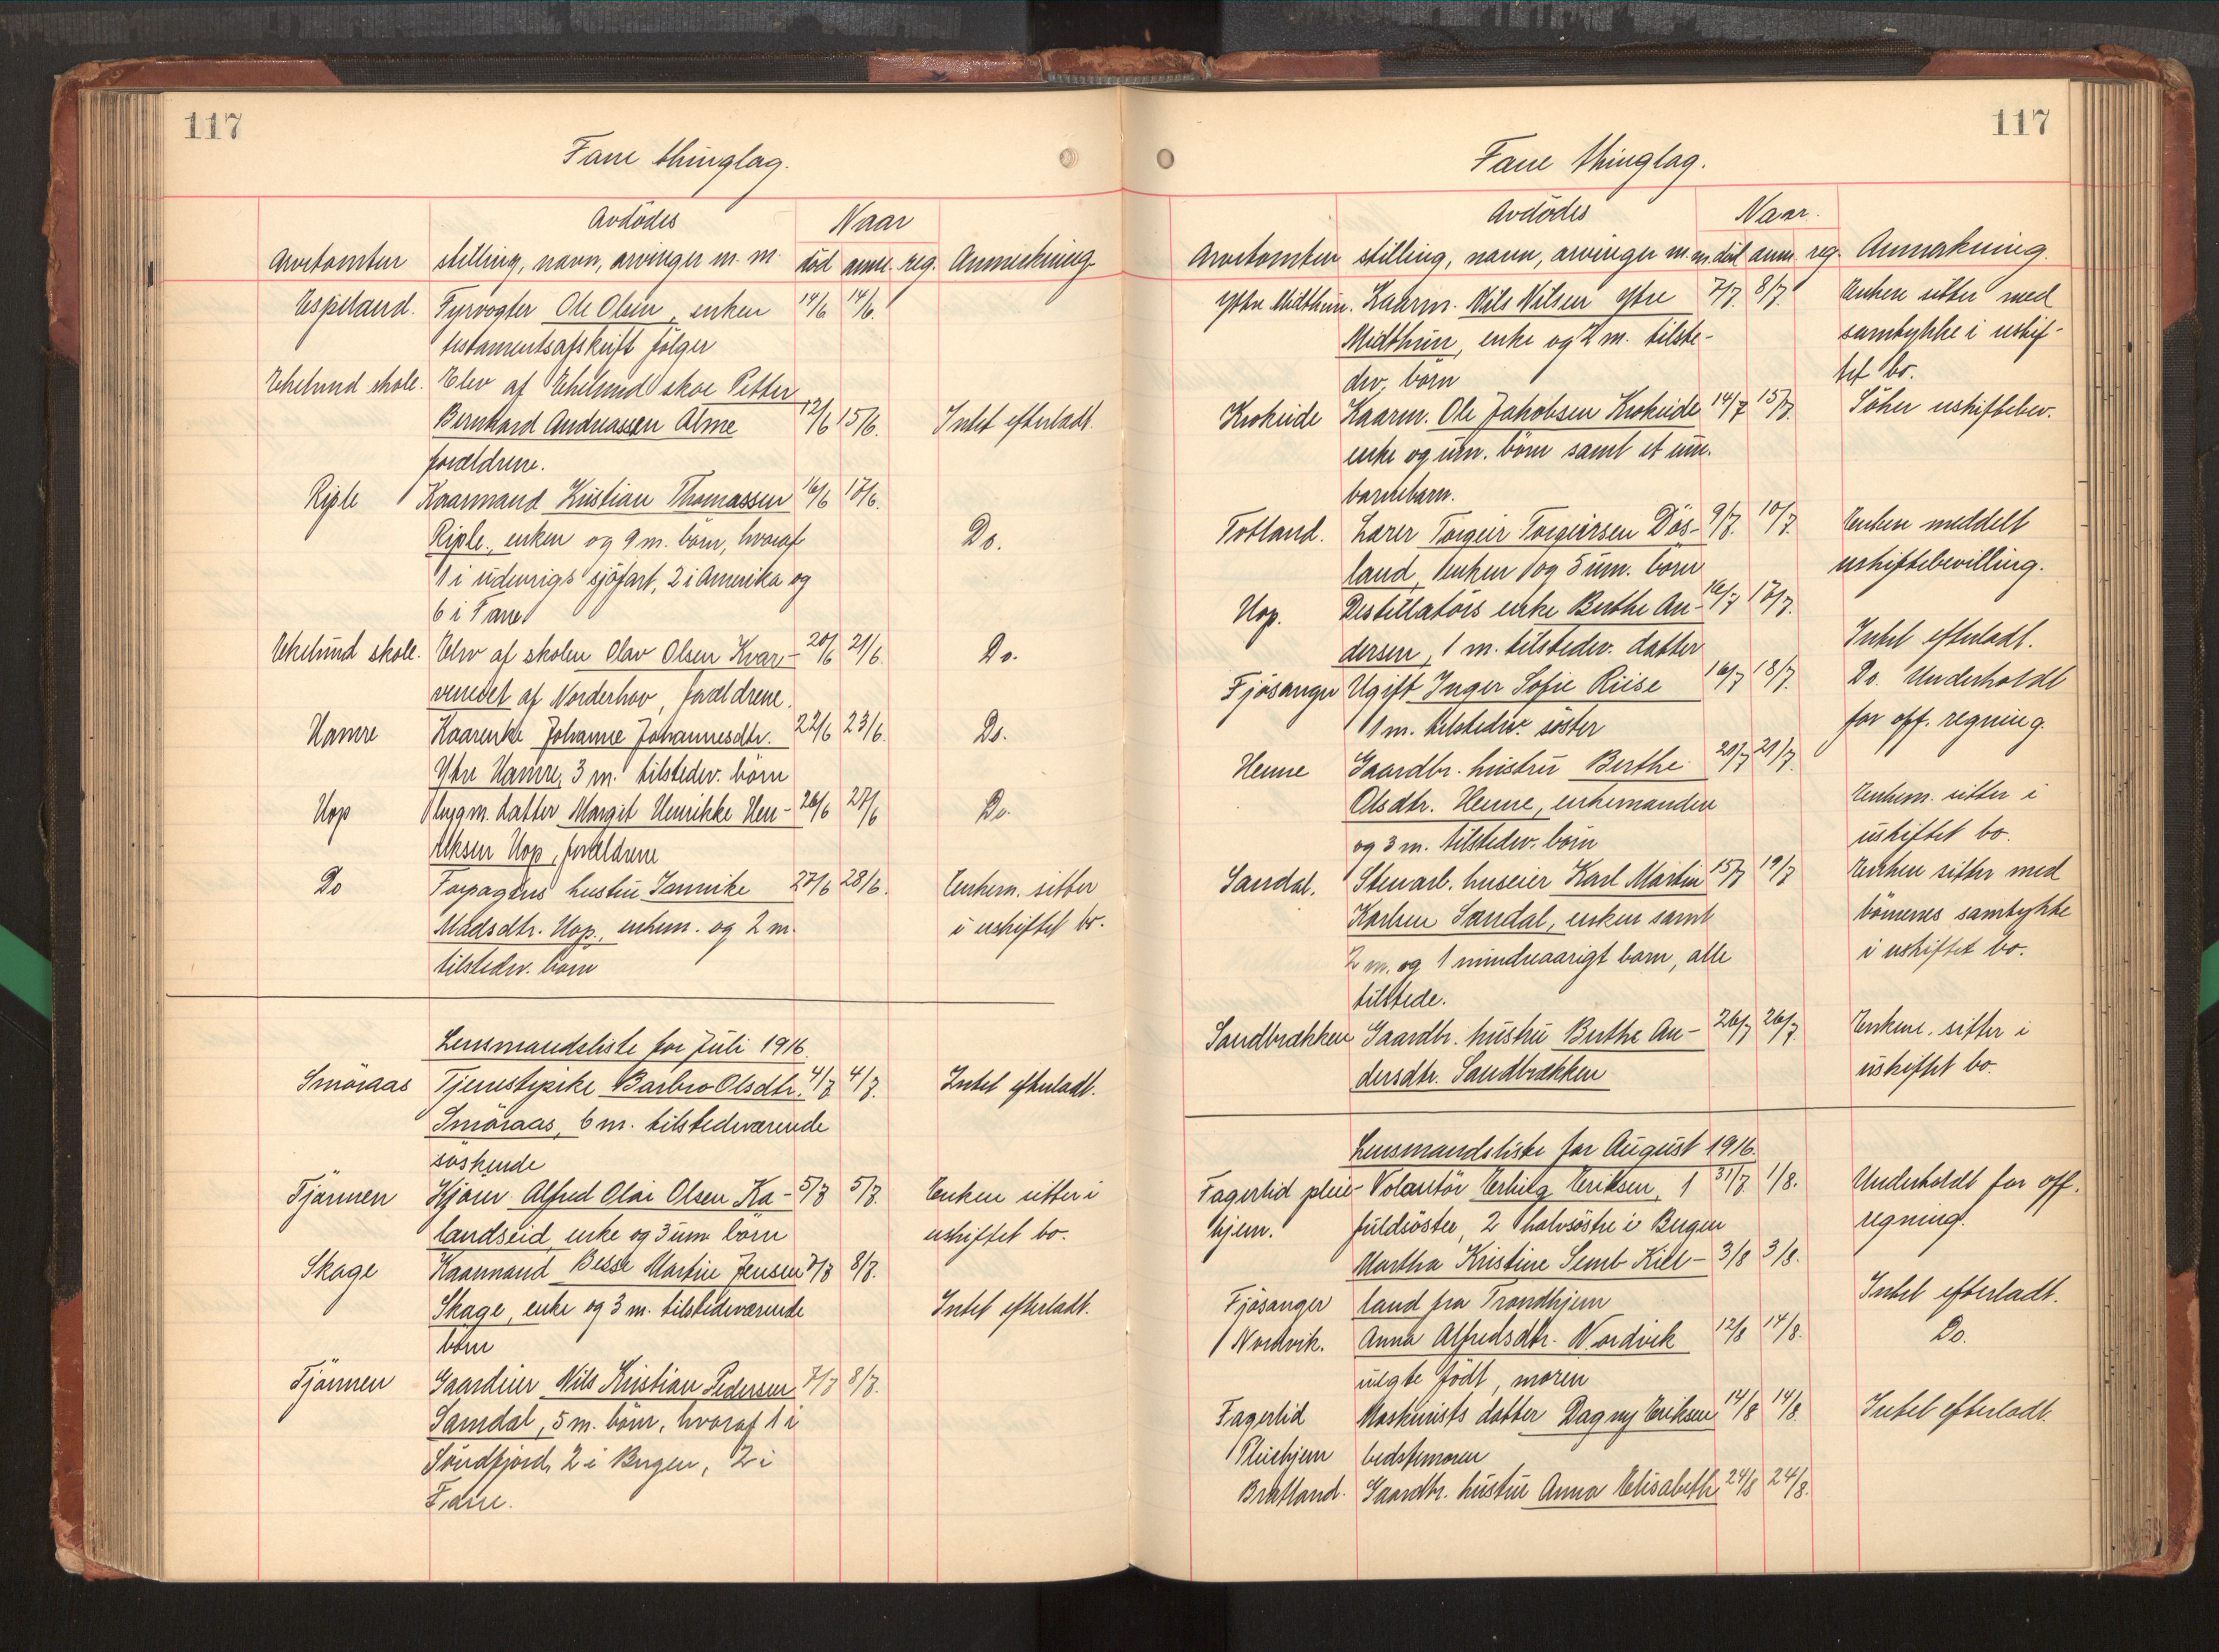 117
Fane thinglag.
Avdödes Naar
Arvetomten stilling, navn, arvinger m. m. död anm. reg. Anmerkning
Espeland. Fyrvogter Ole Olsen, enken 14/6 14/6.
testamentsafskrift fölger
Ekelund skole. Elev af Ekelund skole Petter
Bernhard Andreassen Alme 12/6 15/6. Intet efterladt.
forældrene.
Riple Kaarmand Kristian Thomassen 16/6 17/6.
Riple., enken og 9 m. börn, hvoraf Do.
1 i udenrigs sjöfart, 2 i Amerika og
6 i Fane
Ekelund skole. Elev af skolen Olav Olsen Kvar- 20/6 21/6. Do.
af Norderhov, forældrene.
Hamre Kaarenke Johanne Johannesdtr. 22/6 23/6. Do.
Ytre Hamre, 3 m. tilstedev. börn
Hop Bygm. datter Margit Henrikke Hen- 26/6 27/6 Do.
riksen Hop, forældrene
Do Forpagters hustru Jannike 27/6 28/6. Enkem. sitter
Madsdtr. Hop., enkem. og 2 m. i uskiftet bo.
tilstedev. börn
Lensmandsliste for Juli 1916.
Smöraas Tjenestepike Barbro Olsdtr. 4/7 4/7. Intet efterladt.
Smöraas, 6 m. tilstedeværende
söskende
Tjönnen Kjörer Alfred Olai Olsen Ka- 5/7 5/7. Enken sitter i
landseid, enke og 3 um. börn uskiftet bo.
Skage Kaarmand Besse Martin Jensen 7/7 8/7.
Skage, enke og 3 m. tilstedeværende Intet efterladt.
börn
Tjönnen Gaardeier Nils Kristian Pedersen 7/7 8/7.
Samdal, 5 m. börn, hvoraf 1 i
Söndfjord, 2 i Bergen, 2 i
Fane.
117
Fane thinglag.
Avdödes Naar.
Arvetomten stilling, navn, arvinger m. m. död anm. reg. Anmerkning.
Ytre Midthun. Kaarm. Nils Nilsen Ytre 7/7 8/7. Enken sitter med
Midthun, enke og 2 m. tilste- samtykke i uskif-
dev. börn tet bo.
Krokeide Kaarm. Ole Jakobsen Krokeide 14/7 15/7. Söker uskiftebev.
enke og um. börn samt et um.
barnebarn.
Totland. Lærer Torgeir Torgeirsen Dös- 9/7. 10/7. Enken meddelt
land, enken og 5 um. börn uskiftebevilling.
Hop. Destillatörs enke Berthe An- 16/7 17/7.
dersen, 1 m. tilstedev. datter Intet efterladt.
Fjösanger Ugift Inger Sofie Riise 16/7 18/7. Do. Underholdt
1 m. tilstedev. söster for off. regning.
Henne Gaardbr. hustru Berthe 20/7 21/7.
Olsdtr. Henne, enkemanden Enkem. sitter i
og 3 m. tilstedev. börn uskiftet bo.
Sandal. Stenarb. huseier Karl Martin 15/7 19/7 Enken sitter med
Karlsen Sandal, enken samt börnenes samtykke
2 m. og 1 mindreaarigt barn, alle i uskiftet bo.
tilstede.
Sandbrækken Gaardbr. hustru Berthe An- 26/7 26/7. Enkem. sitter i
dersdtr. Sandbrækken uskiftet bo.
Lensmandsliste for August 1916.
Fagerlid pleie- Volontör Erling Eriksen, 1 31/7. 1/8. Underholdt for off.
hjem. fuldsöster, 2 halvsöstre i Bergen regning.
Martha Kristine Semb Kiel- 3/8 3/8.
Fjösanger land fra Trondhjem Intet efterladt.
Nordvik. Anna Alfredsdtr. Nordvik 12/8 14/8. Do.
uegte födt, moren
Fagerlid Maskinists datter Dagny Eriksen 14/8 14/8. Intet efterladt.
Pleiehjem bedstemoren
Bratland. Gaardbr. hustru Anna Elisabeth 24/8 24/8.